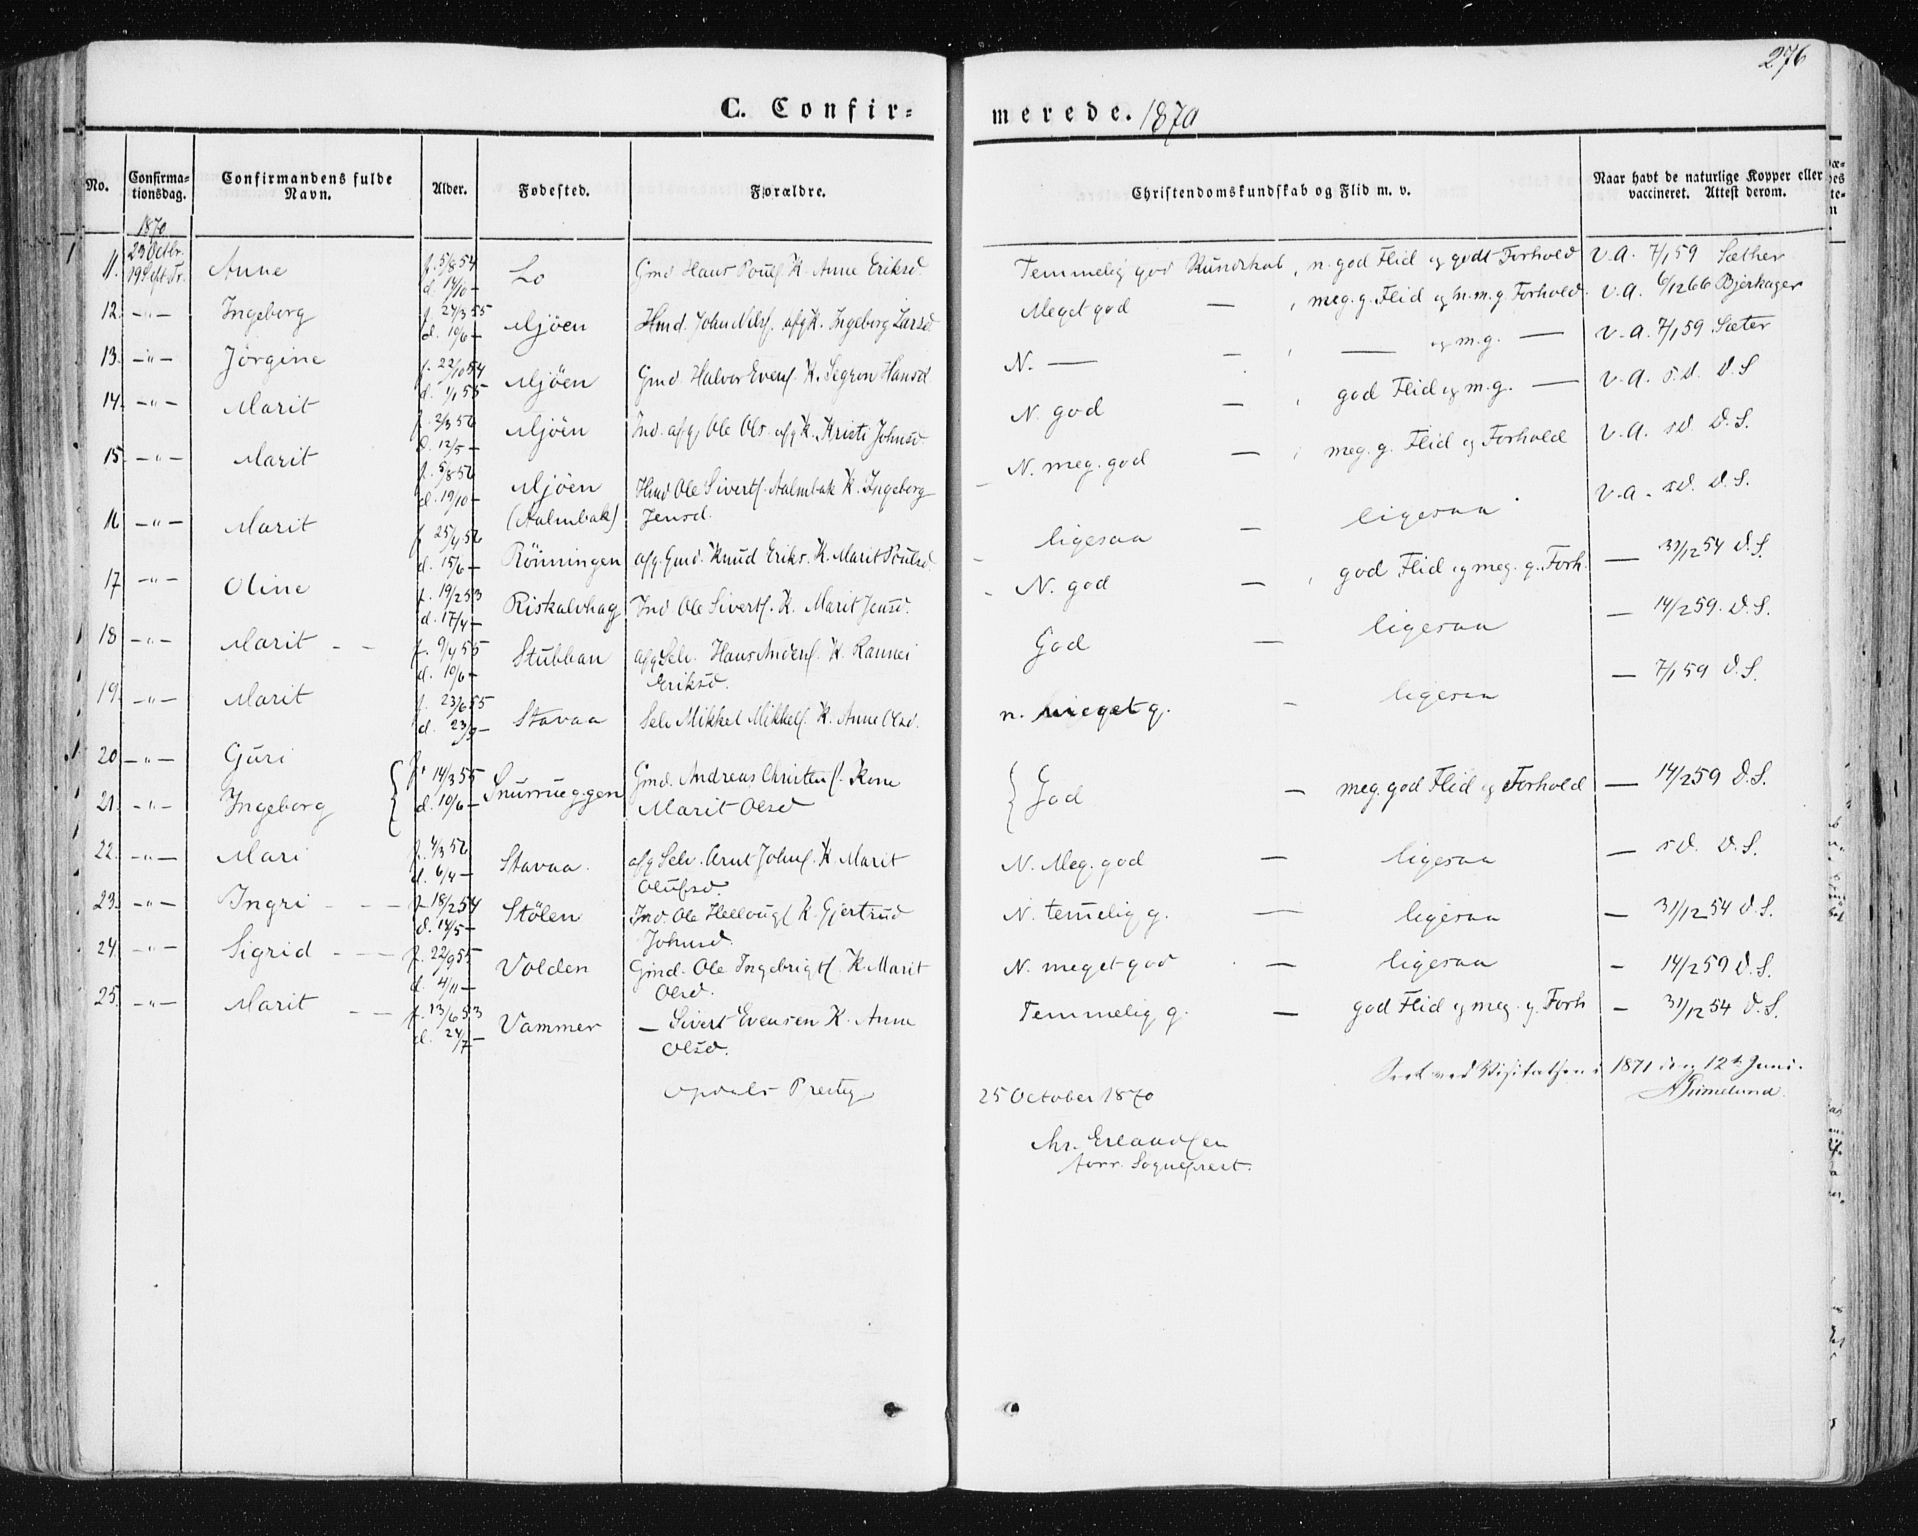 276
C. Confir-
merede. 1870
No.
Confirma-
tionsdag.
Confirmandens fulde
Navn.
Alder.
Fødested.
Forældre.
Christendomskundskab og Flid m. v.
Naar havt de naturlige Kopper eller
vaccineret. Attest derom.
1870
23 Octbr
11. 19 S. e. Tr. Anne f. 5/8 54 d. 14/10 – Lo Gmd Hans Pouls. K. Anne Eriksd Temmelig god Kundskab, n. god Flid og godt Forhold v. a. 7/1 59 Sæther
12. –"– Ingeborg f. 27/3 55 d. 10/6 – Mjöen Hmd. John Nils. afg K. Ingeborg Larsd Meget god — , meg. g. Flid og m. m. g. Forhold. v. a. 6/12 66 Bjerkager
13. –"– Jörgine f. 22/10 54 d. 1/1 55 Mjöen Gmd. Halvor Evens. K. Segron Hansd N. — – , — og m. g. — v. a. 7/1 59 Sæter
14. –"– Marit f. 2/3 56 d. 12/5 – Mjöen Ind. afg Ole Ols. afg K. Kristi Johnsd N. god – , god Flid og m. g. — v. a. s.d. D.S
15. –"– Marit f. 5/8 56 d. 19/10 – Mjöen (Aalmbak) Hmd Ole Siverts. Aalmbak K. Ingeborg
Jensd. N. meg. god — , meg. g. Flid og Forhold v. a. sd. D.S.
16 –"– Marit f. 25/4 56 d. 15/6 – Rönningen afg. Gmd. Knud Eriks. K. Marit Poulsd. ligesaa — ligesaa v. a. sd. D.S.
17 –"– Oline f. 19/2 53 d. 17/4 – Riskalvhag Ind Ole Siverts. K. Marit Jensd. N. god – , god Flid og meg. g. Forh. — 31/12 54 D.S.
18 –"– Marit – – f. 9/4 55 d. 10/6 – Stubban afg Selv. Hans Anders. K. Rannei
Eriksd. God — ligesaa — 14/2 59. D.S.
19. –"– Marit f. 23/6 55 d. 23/9 – Stavaa Selv Mikkel Mikkels. K. Anne Olsd. n. meget g. – ligesaa — 7/1 59 D.S.
20 –"– Guri
21. –"– Ingeborg { f. 14/3 55 d. 10/6 – Snurrueggen Gmd. Andreas Christens. Kone
Marit Olsd { God – meg. god Flid og Forhold — 14/2 59 D.S.
22. –"– Mari f. 4/3 56 d. 6/4 – Stavaa. afg Selv. Arnt Johns. K. Marit
Olufsd. N. Meg. god — ligesaa — sd. D.S.
23. –"– Ingri – – – f. 18/2 54 d. 14/5 – Stölen Ind. Ole Hellougs. K. Gjertrud
Johnsd. N. temelig g. — ligesaa — 31/12 54 D.S.
24. –"– Sigrid – – – f. 22/9 55 d. 4/11 – Volden Gmd. Ole Ingebrigts. K Marit
Olsd. N. meget god — ligesaa – 14/2 59 D.S.
25. –"– Marit – – f. 13/6 53 d. 24/7 – Vammer — Sivert Evensen K. Anne
Olsd. Temmelig g. — god Flid og meg. g. Forh – 31/12 54 D.S.
Seet ved Visitatsen i 1871 den 12te Juni.
A Grimelund.
Opdals Prestg 25 October 1870
Chr. Erlandsen
Sognepræst.